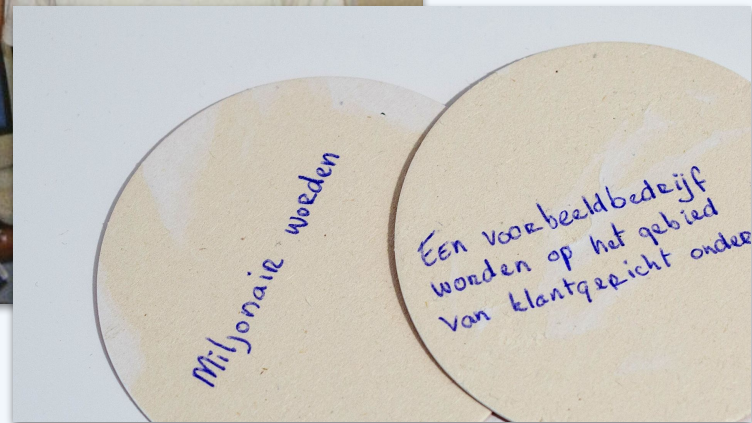 Miljonair worden
Een voorbeeldbedrijf
worden op het gebied
van klantgericht onder